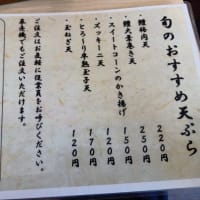 旬のおすすめ天ぷら
・鱧梅肉天 220円
・鱧大葉巻き天 250円
・スイートコーンのかき揚げ 150円
・ズッキーニ天 120円
・とろ～り半熟玉子天 170円
・玉ねぎ天 120円
ご注文はお気軽に従業員をお呼びください。
券売機でもご注文いただけます。